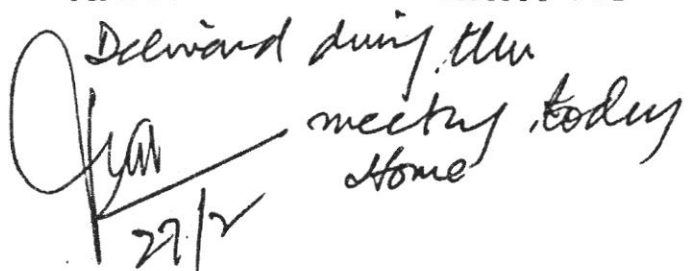 Delivered during the
meeting today
Home
27/2